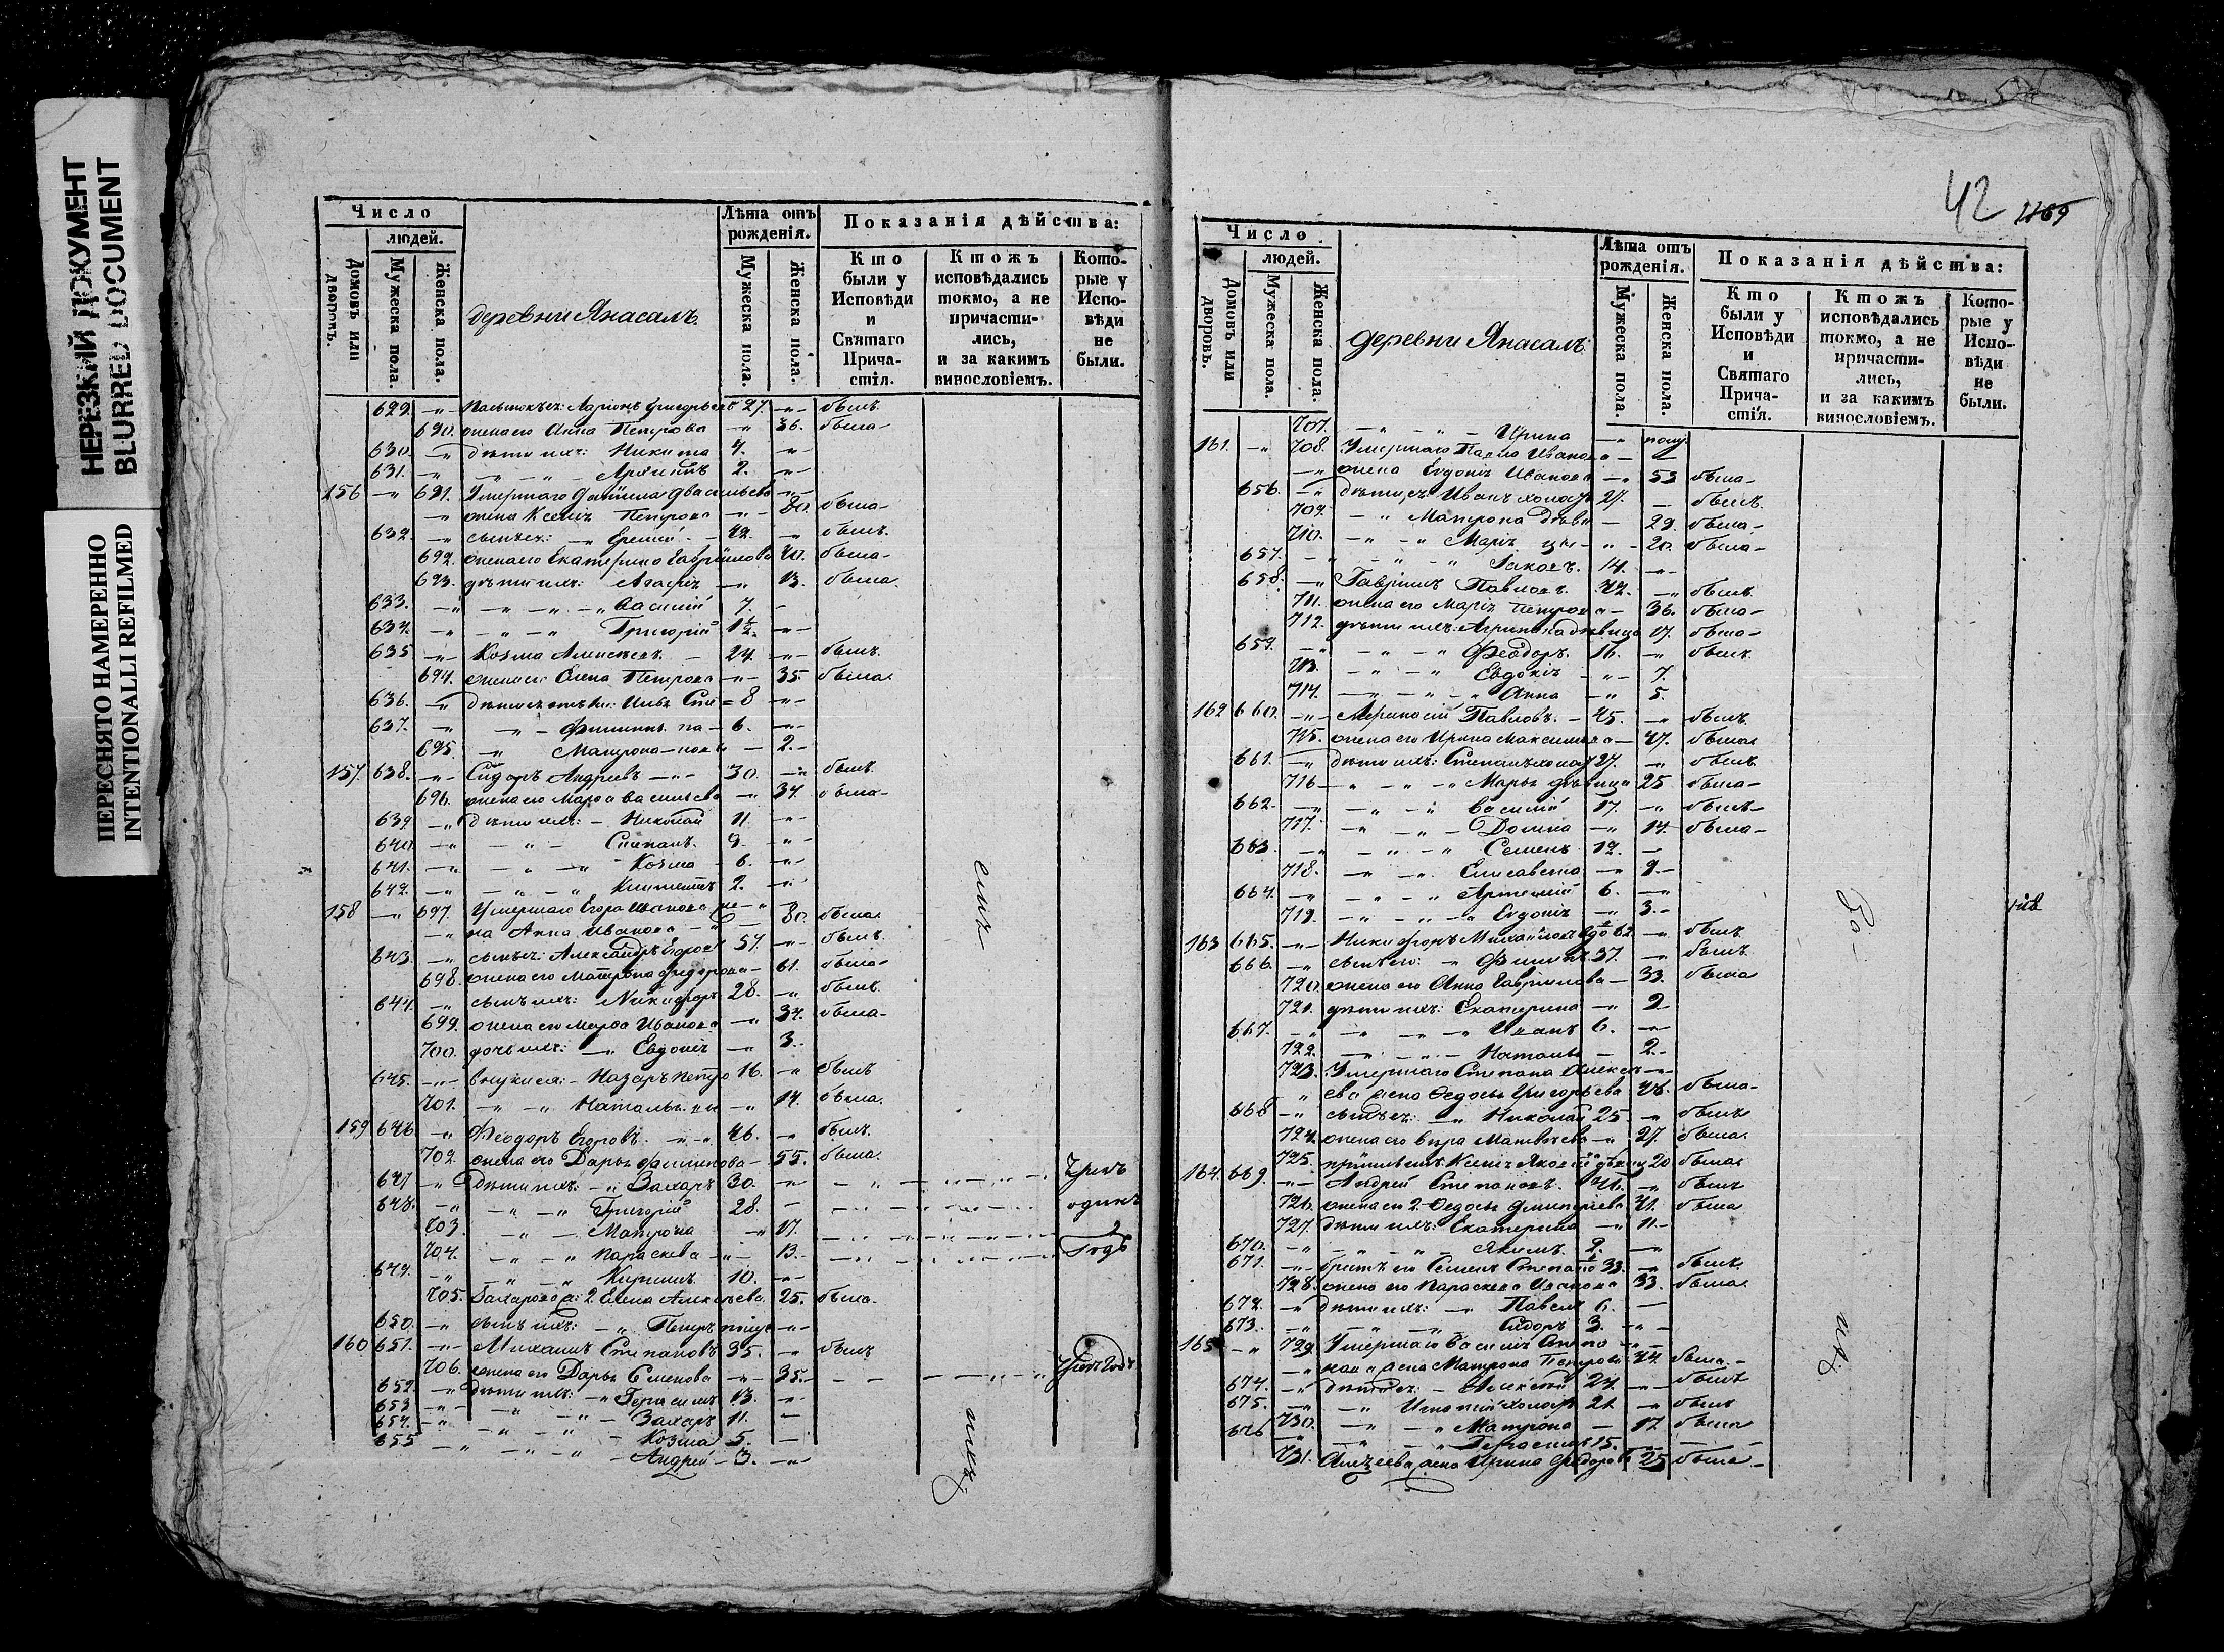 НЕРЕЗКИЙ ДОКУМЕНТ
BLURRED DOCUMENT
ПЕРЕСНЯТО НАМЕРЕННО
INTENTIONALLI REFILMED
Число
людей.
Домовъ или дворовъ.
Мужеска пола.
Женска пола.
деревни Янасалъ
Лѣта отъ рожденія.
Мужеска пола.
Женска пола.
Показанія дѣйства:
Кто были у Исповѣди и Святаго Прича-стія.
Ктожъ исповѣдались токмо, а не причасти-лись, и за какимъ винословіемъ.
Кото-рые у Испо-вѣди не были.
629. Ларіонъ Григорьевъ 27. былъ
690. жена его Анна Петрова 36. была
630. дѣти ихъ: Никита 4.
631. 2.
156 691. Умершаго
жена Ксенія Петрова 80. была
632. сынъ ея: 42. былъ
692. жена его Екатерина Гаврилова 40. была
693. дѣти ихъ: Агафія 13. была
633. Василій 7.
634. Григорій 1½.
635 Козма Алексѣевъ 24. былъ
694. жена его Елена Петрова 35. была
636. 8
637. Филиппъ 6.
695. Матрона 2.
157. 638. Сидоръ Андреевъ 30. былъ
696. жена его Марѳа Васильева 34. была
639. дѣти ихъ: Николай 11
640. Степанъ 9.
641. Козма 6.
642. 2.
158 697. Умершаго Егора Иванова же-
на Анна Иванова 80. была
643. сынъ ея: Александръ Егоровъ 57. былъ
698. жена его Матрона Федорова 61. была
644. сынъ ихъ: Никифоръ 28. былъ
699. жена его Марѳа Иванова 34. была
700. дочь ихъ: Евдокія 3.
645. внуки ея: Назаръ Петро 16. былъ
701. Наталья 14. была
159 646. Феодоръ Егоровъ 46. былъ
702. жена его Дарья Филипова 55. была
647 дѣти ихъ: Захаръ 30. Чрезъ
648. Григорій 28. одинъ
703. Матрона 17. годъ
704. Параскева 13.
649. Кирилъ 10.
705. Захарова ж: 2 Елена Алексѣева 25. была
650. сынъ ихъ: Петръ полуг
160 651. Михаилъ Степановъ 35. былъ
706. жена его Дарья Семенова 35. чрезъ годъ
652. дѣти ихъ: Герасимъ 13.
653 Захаръ 11.
654. Козма 5.
655 Андрей 3.
42
1169
Число
людей.
Домовъ или дворовъ.
Мужеска пола.
Женска пола.
деревни Янасалъ
Лѣта отъ рожденія.
Мужеска пола.
Женска пола.
Показанія дѣйства:
Кто были у Исповѣди и Святаго Прича-стія.
Ктожъ исповѣдались токмо, а не причасти-лись, и за какимъ винословіемъ.
Кото-рые у Испо-вѣди не были.
707. Ирина полуг
161. 708. Умершаго Павла Иванова
жена Евдокія Иванова 53 была
656. дѣти ея: Иванъ холост 27. былъ
709. Матрона дѣви 29. была
710. Марія 20. была
657. Яковъ 14.
658. Гавріилъ Павловъ 42. былъ
711. жена его Марія Петрова 36. была
712. дѣти ихъ: Агрипина дѣвица 17. была
659. Феодоръ 16. былъ
713. Евдокія 7.
714. Анна 5.
162 660. Павловъ 45. былъ
715. жена его Ирина Максимова 47. была
661. дѣти ихъ: Степанъ холост 27. былъ
716 Марья дѣвица 25 была
662. Василій 17. былъ
717. Домна 14. была
663. Семенъ 12.
718. Елисавета 9
664. Артемій 6.
719. Евдокія 3.
163 665. Никифоръ Михайловъ вдо 62. былъ
666. сынъ его: Филиппъ 37. былъ
720. жена его Анна Гаврилова 33. была
721. дѣти ихъ: Екатерина 9
667. Иванъ 6.
722. Наталья 2.
723. Умершаго Степана Алексѣ
ева жена Ѳедосья Григорьева 46. была
668 сынъ ея: Николай 25. былъ
724. жена его Вѣра Матвѣева 27. была
725. Ксенія 20 была
164. 669. Андрей Степановъ 41. былъ
726. жена его 2. Ѳедосья Дмитріева 41. была
727. дѣти ихъ: Екатерина 11.
670. Якимъ 2.
671. братъ его Семенъ Степано 33. былъ
728. жена его Параскева Иванова 33. была
672. дѣти ихъ: Павелъ 6.
673. Сидоръ 3.
165 729 Умершаго Василія Степа
нова жена Матрона Петрова 44. была
674. дѣти ея: Алексѣй 24. былъ
675. Игнатій холост 21. былъ
730. Матрона 17 была
676 Герасимъ 15.
731. Алексѣева жена Ирина Федоров 25 была